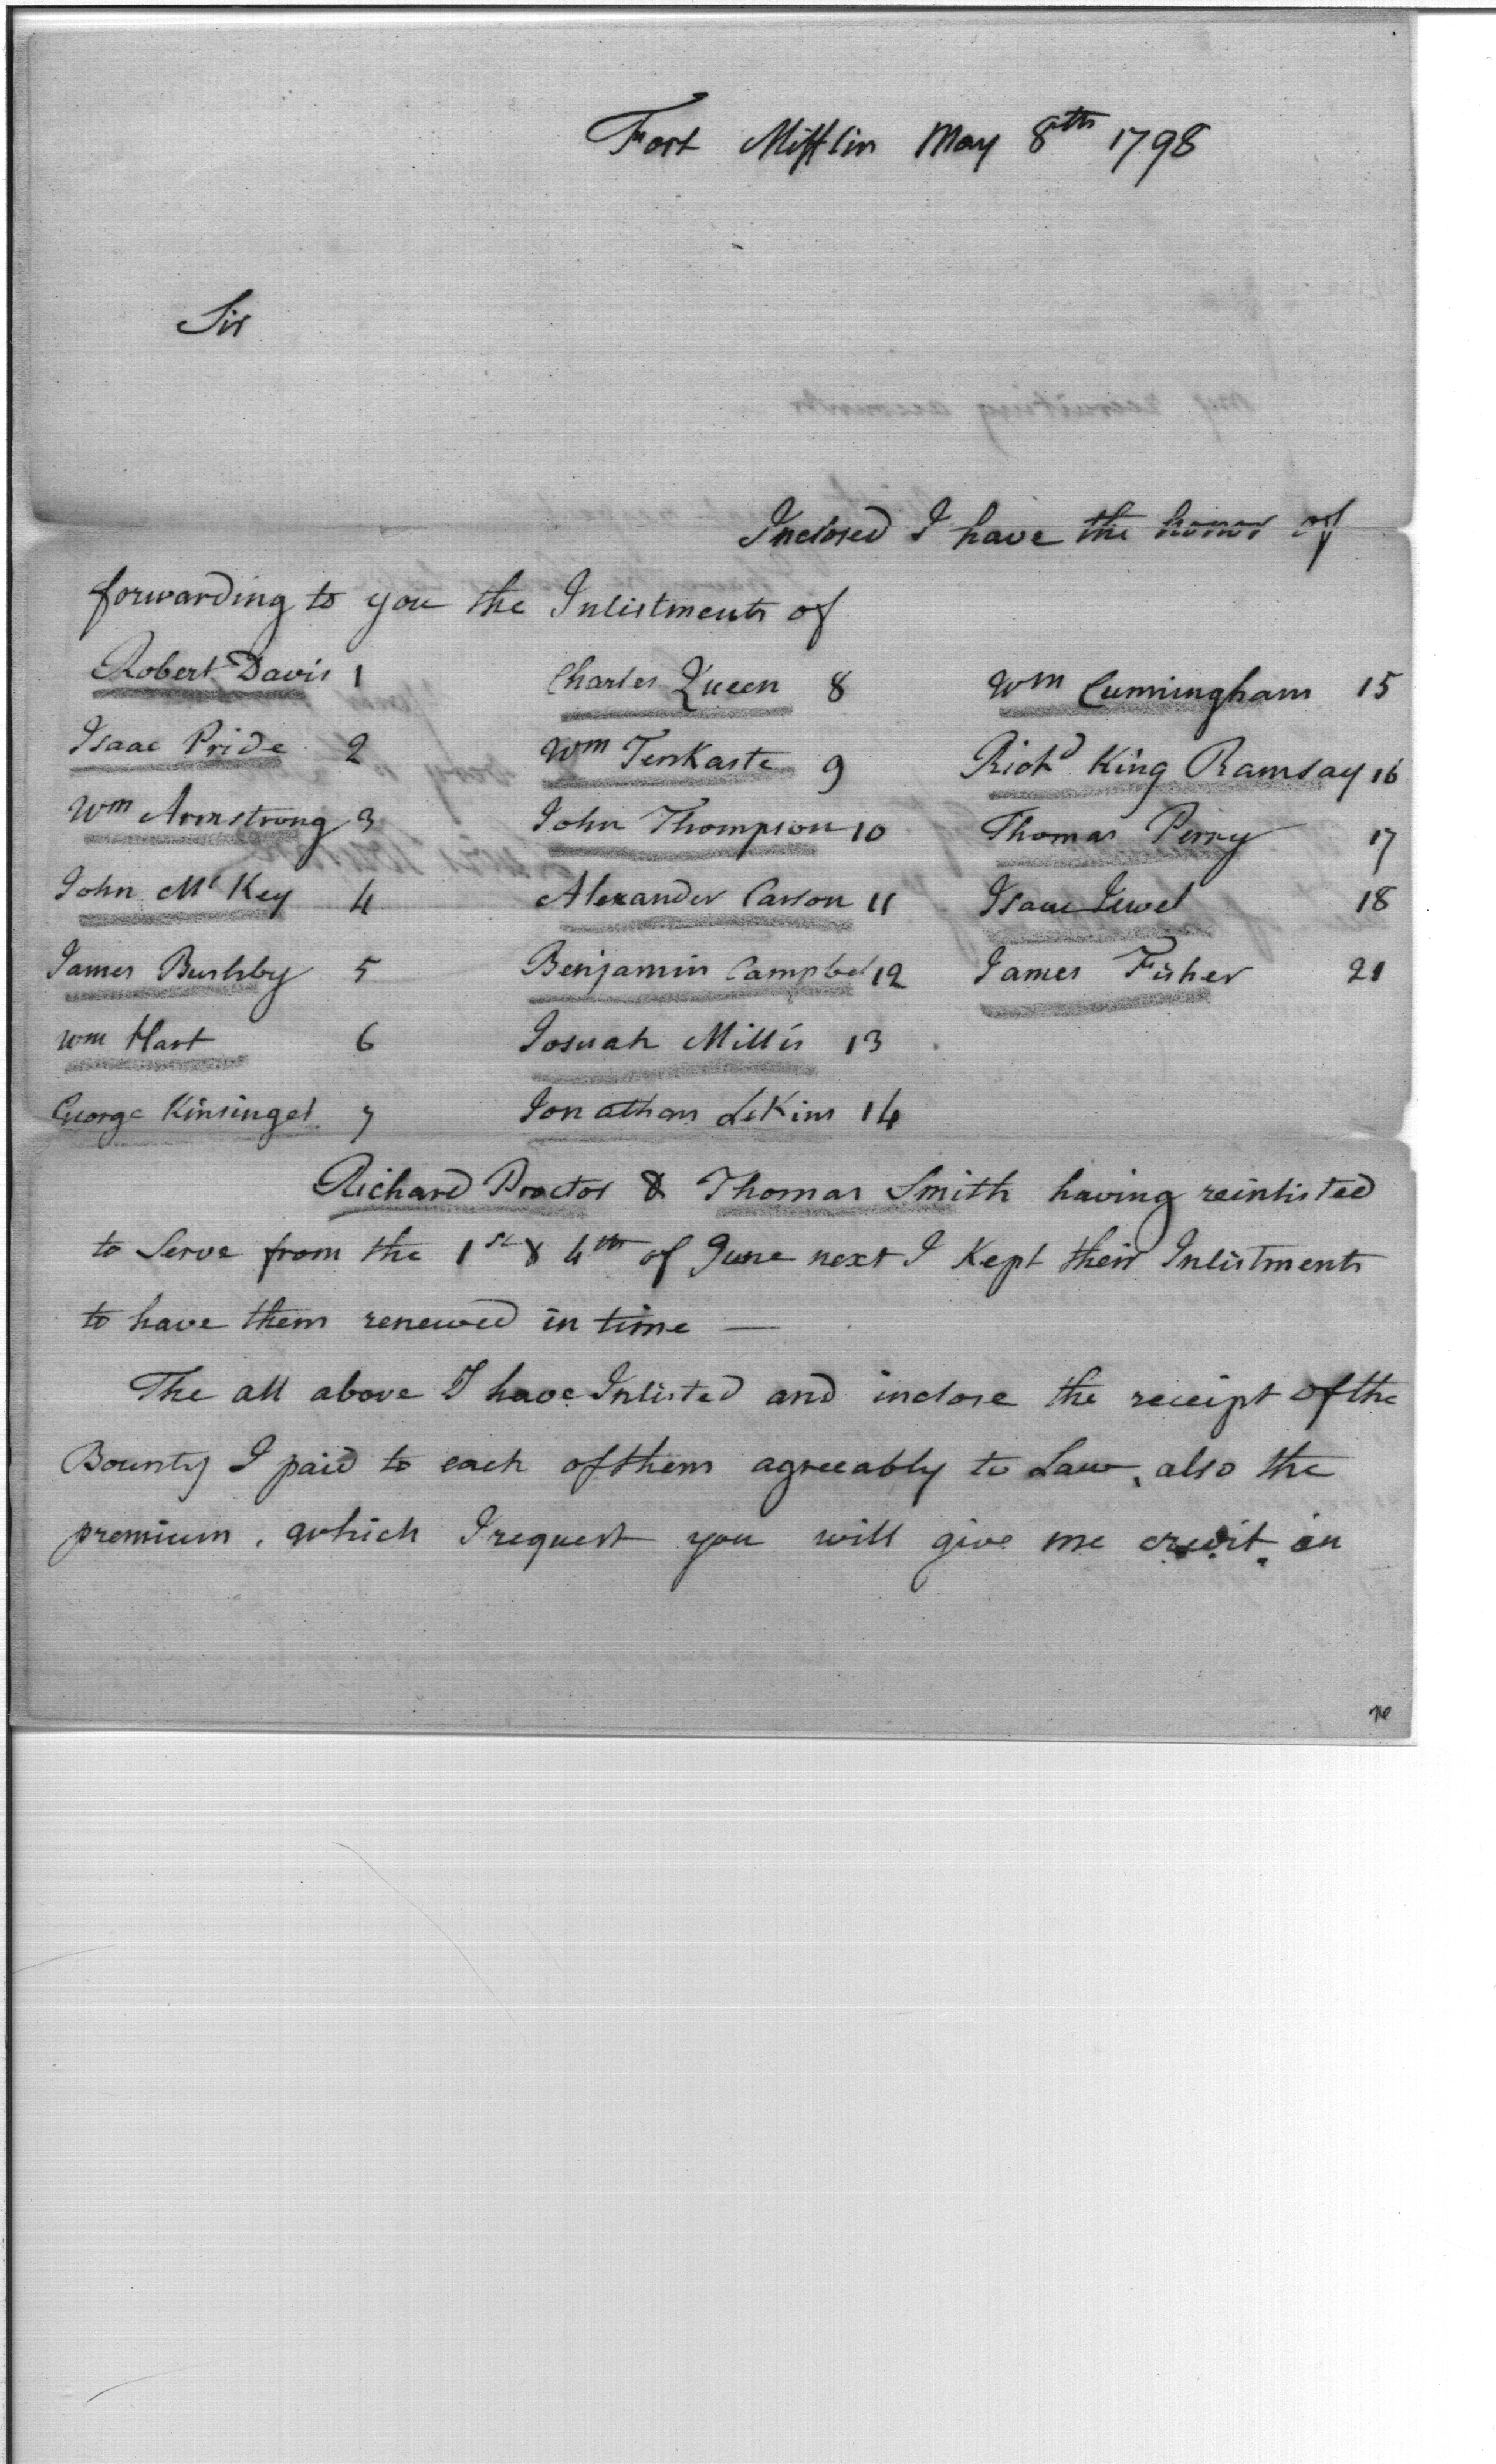 Fort Mifflin May 8th 1798
Sir
Inclosed I have the honor of
forwarding to you the Inlistments of
Robert Davis 1 Charles Queen 8 Wm Cunningham 15
Isaac Pride 2 Wm TenKaste 9 Richd King Ramsay 16
Wm Armstrong 3 John Thompson 10 Thomas Perry 17
John McKey 4 Alexander Carson 11 Isaac Jewel 18
James Bushby 5 Benjamin Campbel 12 James Fisher 21
Wm Hart 6 Josuah Millis 13
George Kinsinger 7 Jonathan LeKins 14
Richard Proctor & Thomas Smith having reinlisted
to Serve from the 1st & 4th of June next I Kept their Inlistments
to have them renewed in time —
The all above I have Inlisted and inclose the receipt of the
Bounty I paid to each of them agreeably to Law, also the
premium, which I request you will give me credit in